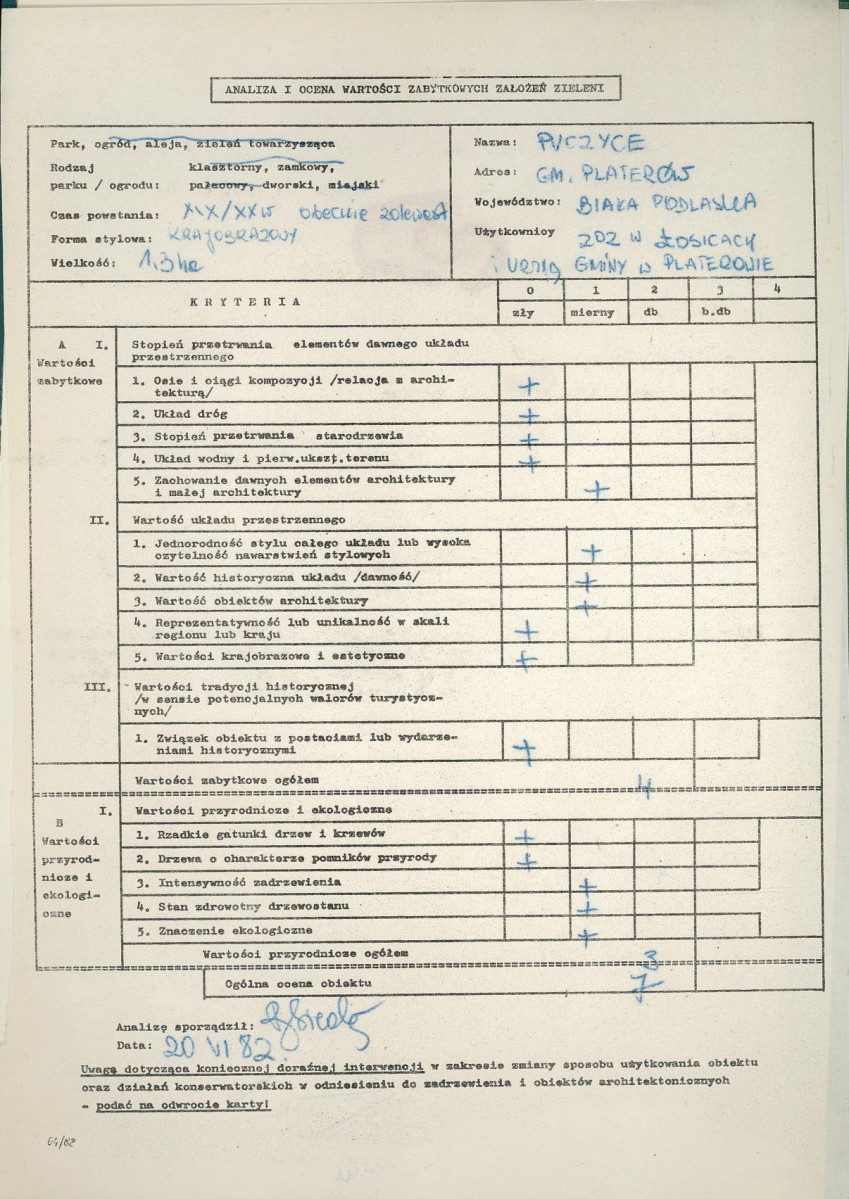 ANALIZA I OCENA WARTOŚCI ZABYTKOWYCH ZAŁOŻEŃ ZIELENI
Park, ogród, aleja, zieleń towarzysząca
Rodzaj klasztorny, zamkowy,
parku / ogrodu: pałacowy, dworski, miejski
Czas powstania: XIX/XXw obecnie
Forma stylowa: KRAJOBRAZOWY
Wielkość: 1,3 ha
Nazwa: PUCZYCE
Adres: GM. PLATERÓW
Województwo: BIAŁA PODLASKA
Użytkownicy ZOZ W ŁOSICACH
i URZĄD GMINY W PLATEROWIE
KRYTERIA
0 1 2 3 4
zły mierny db b.db
A I. Stopień przetrwania elementów dawnego układu
przestrzennego
Wartości
zabytkowe
1. Osie i ciągi kompozycji /relacja z archi-
tekturą/ +
2. Układ dróg +
3. Stopień przetrwania starodrzewia +
4. Układ wodny i pierw.ukszt.terenu +
5. Zachowanie dawnych elementów architektury
i małej architektury +
II. Wartość układu przestrzennego
1. Jednorodność stylu całego układu lub wysoka
czytelność nawarstwień stylowych +
2. Wartość historyczna układu /dawność/ +
3. Wartość obiektów architektury +
4. Reprezentatywność lub unikalność w skali
regionu lub kraju +
5. Wartości krajobrazowe i estetyczne +
III. Wartości tradycji historycznej
/w sensie potencjalnych walorów turystycz-
nych/
1. Związek obiektu z postaciami lub wydarze-
niami historycznymi +
Wartości zabytkowe ogółem 4
B I. Wartości przyrodnicze i ekologiczne
Wartości
przyrod-
nicze i
ekologi-
czne
1. Rzadkie gatunki drzew i krzewów +
2. Drzewa o charakterze pomników przyrody +
3. Intensywność zadrzewienia +
4. Stan zdrowotny drzewostanu +
5. Znaczenie ekologiczne +
Wartości przyrodnicze ogółem 3
Ogólna ocena obiektu 7
Analizę sporządził:
Data: 20 VI 82.
Uwagę dotycząca koniecznej doraźnej interwencji w zakresie zmiany sposobu użytkowania obiektu
oraz działań konserwatorskich w odniesieniu do zadrzewienia i obiektów architektonicznych
- podać na odwrocie karty!
64/82